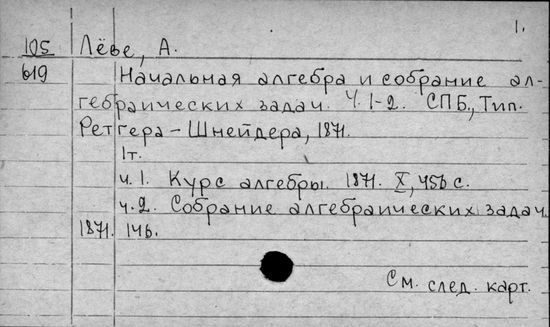 1.
105 Лёве, А.
619 Начальная алгебра и собрание ал-
гебраических задач. Ч. 1-2. СПБ., Тип.
Ретгера-Шнейдера, 1871.
1т.
ч. 1. Курс алгебры. 1871. X, 456 с.
ч. 2. Собрание алгебраических задач.
1871. 146.
См. след. карт.